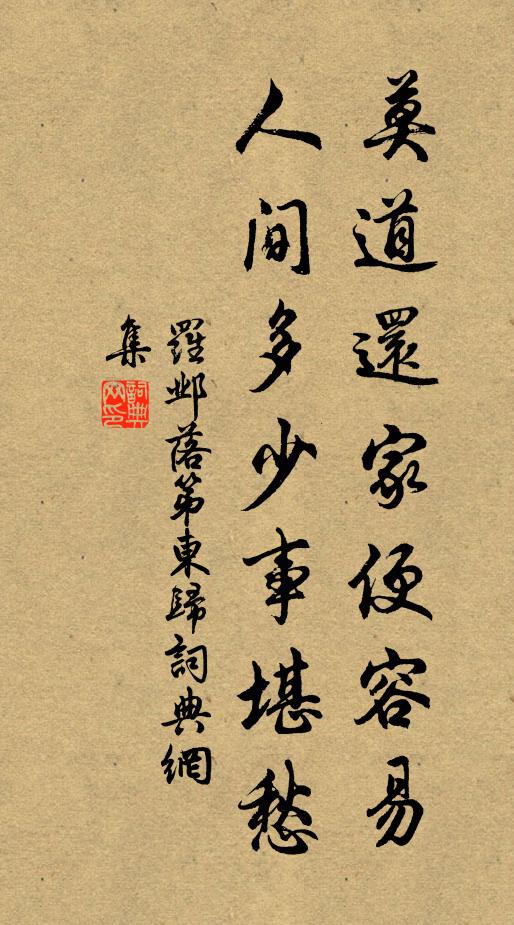 莫道還家便容易
人間多少事堪愁
羅邺落第東歸詞典網
集
詞典
网印